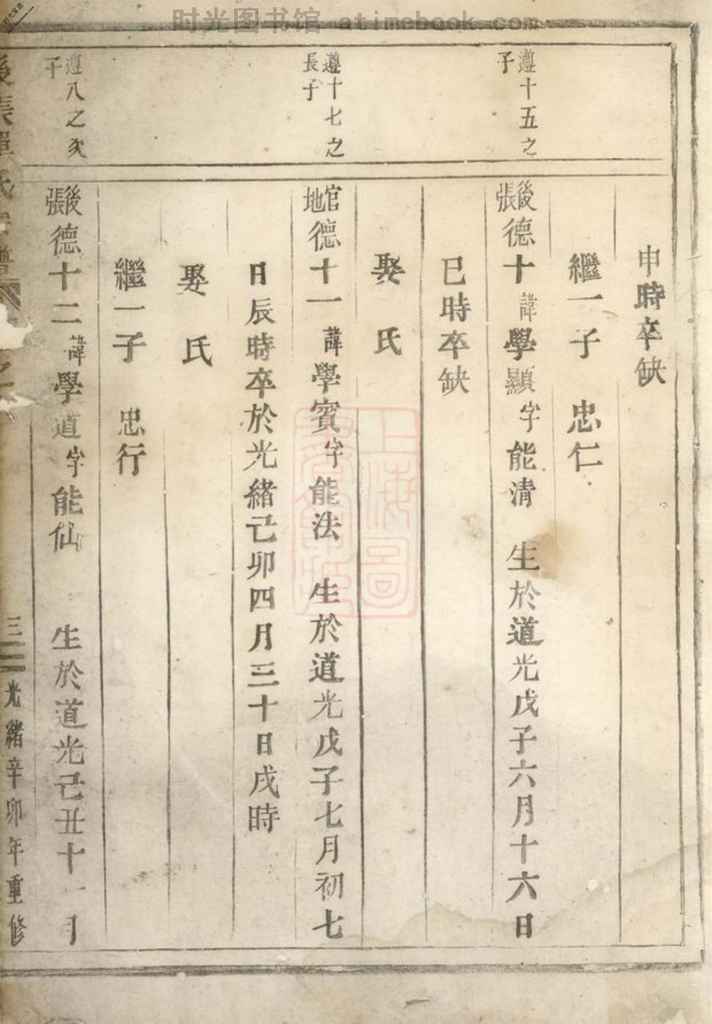 时光图书馆 atimebook.com
申時卒缺
繼一子 忠仁
遵十五之
子
後
張
德十諱學顯字能清 生於道光戊子六月十六日
巳時卒缺
娶氏
遵十七之
長子
官
地
德十一諱學賓字能法 生於道光戊子七月初七
日辰時卒於光緒己卯四月三十日戌時
娶氏
繼一子 忠行
遵八之次
子
後
張
德十二諱學道字能仙 生於道光己丑十一月
三
光緒辛卯年重修